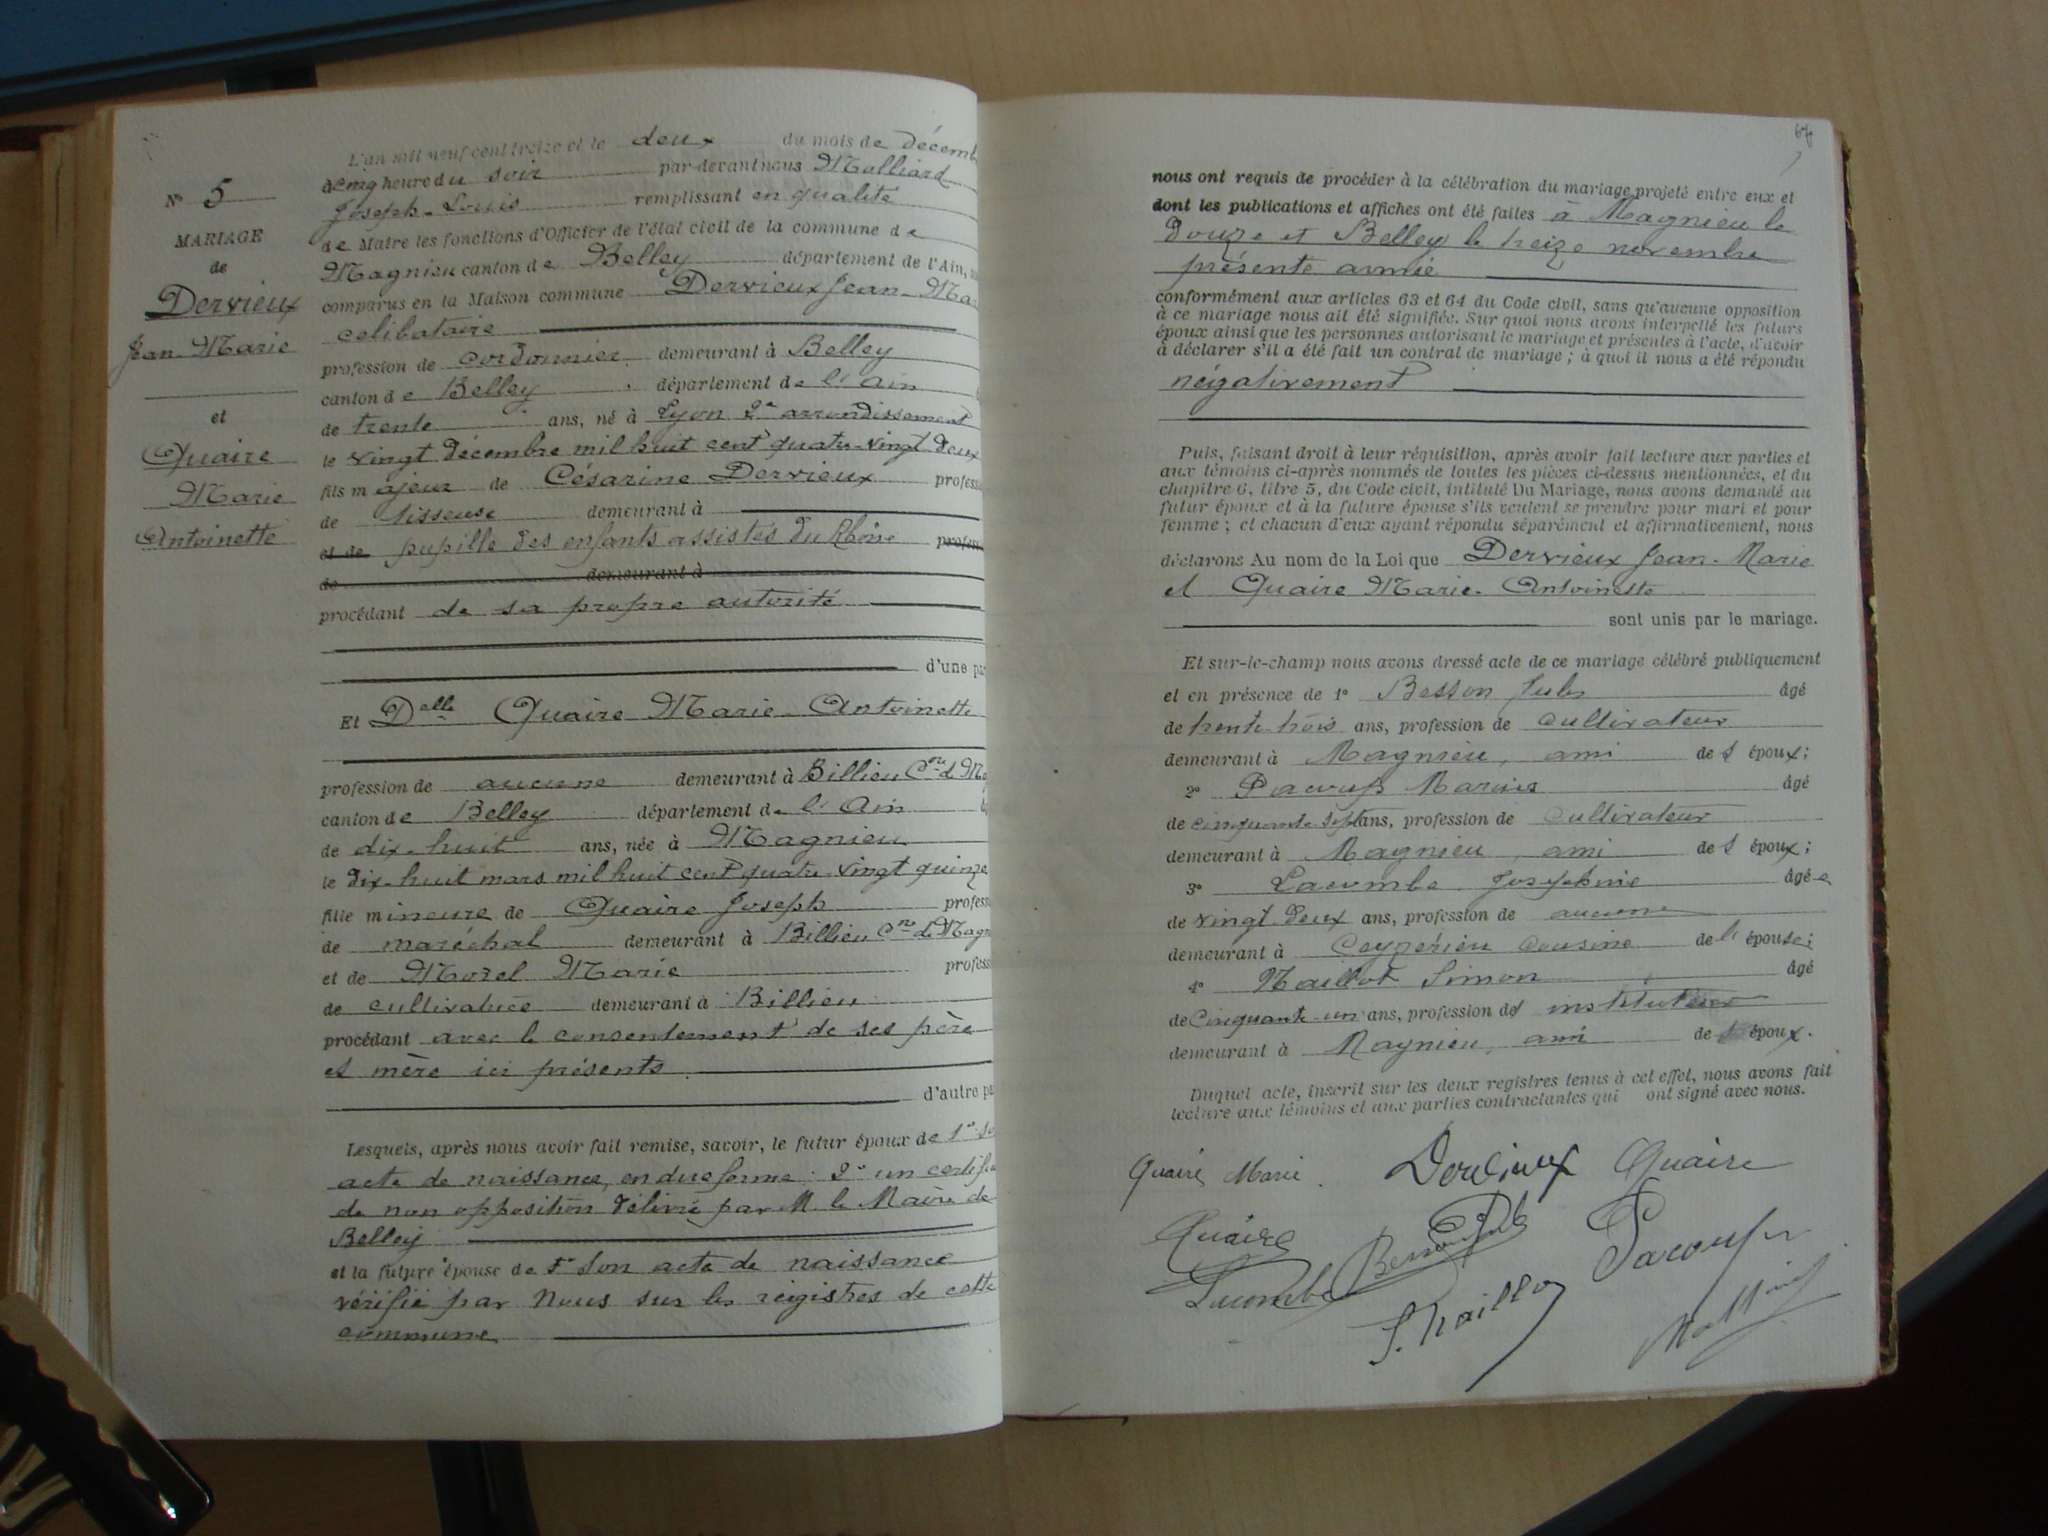 L'an mil neuf cent treize et le deux du mois de décemb
à cinq heure du soir par-devant nous Malliard
Joseph-Louis remplissant en qualité
de Maire les fonctions d'Officier de l'état civil de la commune de
Magnieu canton de Belley département de l'Ain,
comparus en la Maison commune Dervieux Jean-Mar
célibataire
profession de cordonnier demeurant à Belley
canton de Belley département de l'Ain
de trente ans, né à Lyon 2e arrondissement
le vingt décembre mil huit cent quatre-vingt deux
fils majeur de Césarine Dervieux profess
de tisseuse demeurant à
et de pupille des enfants assistés du Rhône profess
de demeurant à
procédant de sa propre autorité
d'une pa
Et Delle Quaire Marie-Antoinette
profession de aucune demeurant à Billieu Cne de Ma
canton de Belley département de l'Ain
de dix-huit ans, née à Magnieu
le dix-huit mars mil huit cent quatre-vingt quinze
fille mineure de Quaire Joseph profess
de maréchal demeurant à Billieu Cne de Magn
et de Morel Marie profess
de cultivatrice demeurant à Billieu
procédant avec le consentement de ses père
et mère ici présents
d'autre pa
Lesquels, après nous avoir fait remise, savoir, le futur époux de 1° so
acte de naissance, en due forme 2° un certifi
de non opposition délivré par M. le Maire de
Belley
et la future épouse de 1° son acte de naissance
vérifié par Nous sur les régistres de cette
commune
N° 5
MARIAGE
de
Dervieux
Jean-Marie
et
Quaire
Marie
Antoinette
67
nous ont requis de procéder à la célébration du mariage projeté entre eux et
dont les publications et affiches ont été faites à Magnieu le
douze et Belley le treize novembre
présente année
conformément aux articles 63 et 64 du Code civil, sans qu'aucune opposition
à ce mariage nous ait été signifiée. Sur quoi nous avons interpellé les futurs
époux ainsi que les personnes autorisant le mariage et présentes à l'acte, d'avoir
à déclarer s'il a été fait un contrat de mariage ; à quoi il nous a été répondu
négativement
Puis, faisant droit à leur réquisition, après avoir fait lecture aux parties et
aux témoins ci-après nommés de toutes les pièces ci-dessus mentionnées, et du
chapitre 6, titre 5, du Code civil, intitulé Du Mariage, nous avons demandé au
futur époux et à la future épouse s'ils veulent se prendre pour mari et pour
femme ; et chacun d'eux ayant répondu séparément et affirmativement, nous
déclarons Au nom de la Loi que Dervieux Jean-Marie
et Quaire Marie-Antoinette
sont unis par le mariage.
Et sur-le-champ nous avons dressé acte de ce mariage célébré publiquement
et en présence de 1° Besson Jules âgé
de trente-trois ans, profession de cultivateur
demeurant à Magnieu, ami des époux;
2° Marius âgé
de cinquante sept ans, profession de cultivateur
demeurant à Magnieu, ami des époux;
3° Lacombe Joséphine âgée
de vingt-deux ans, profession de aucune
demeurant à Ceyzérieu cousine de l'épouse;
4° Maillot Simon âgé
de cinquante-un ans, profession d' instituteur
demeurant à Magnieu, ami des époux.
Duquel acte, inscrit sur les deux registres tenus à cet effet, nous avons fait
lecture aux témoins et aux parties contractantes qui ont signé avec nous.
Quaire Marie Dervieux Quaire
Quaire
Lacombe